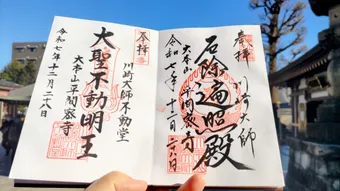 奉拝
川崎大師
厄除遍照殿
大本山平間寺
令和七年十二月二八日
奉拝
川崎大師不動堂
大聖不動明王
大本山平間寺
令和七年十二月二八日